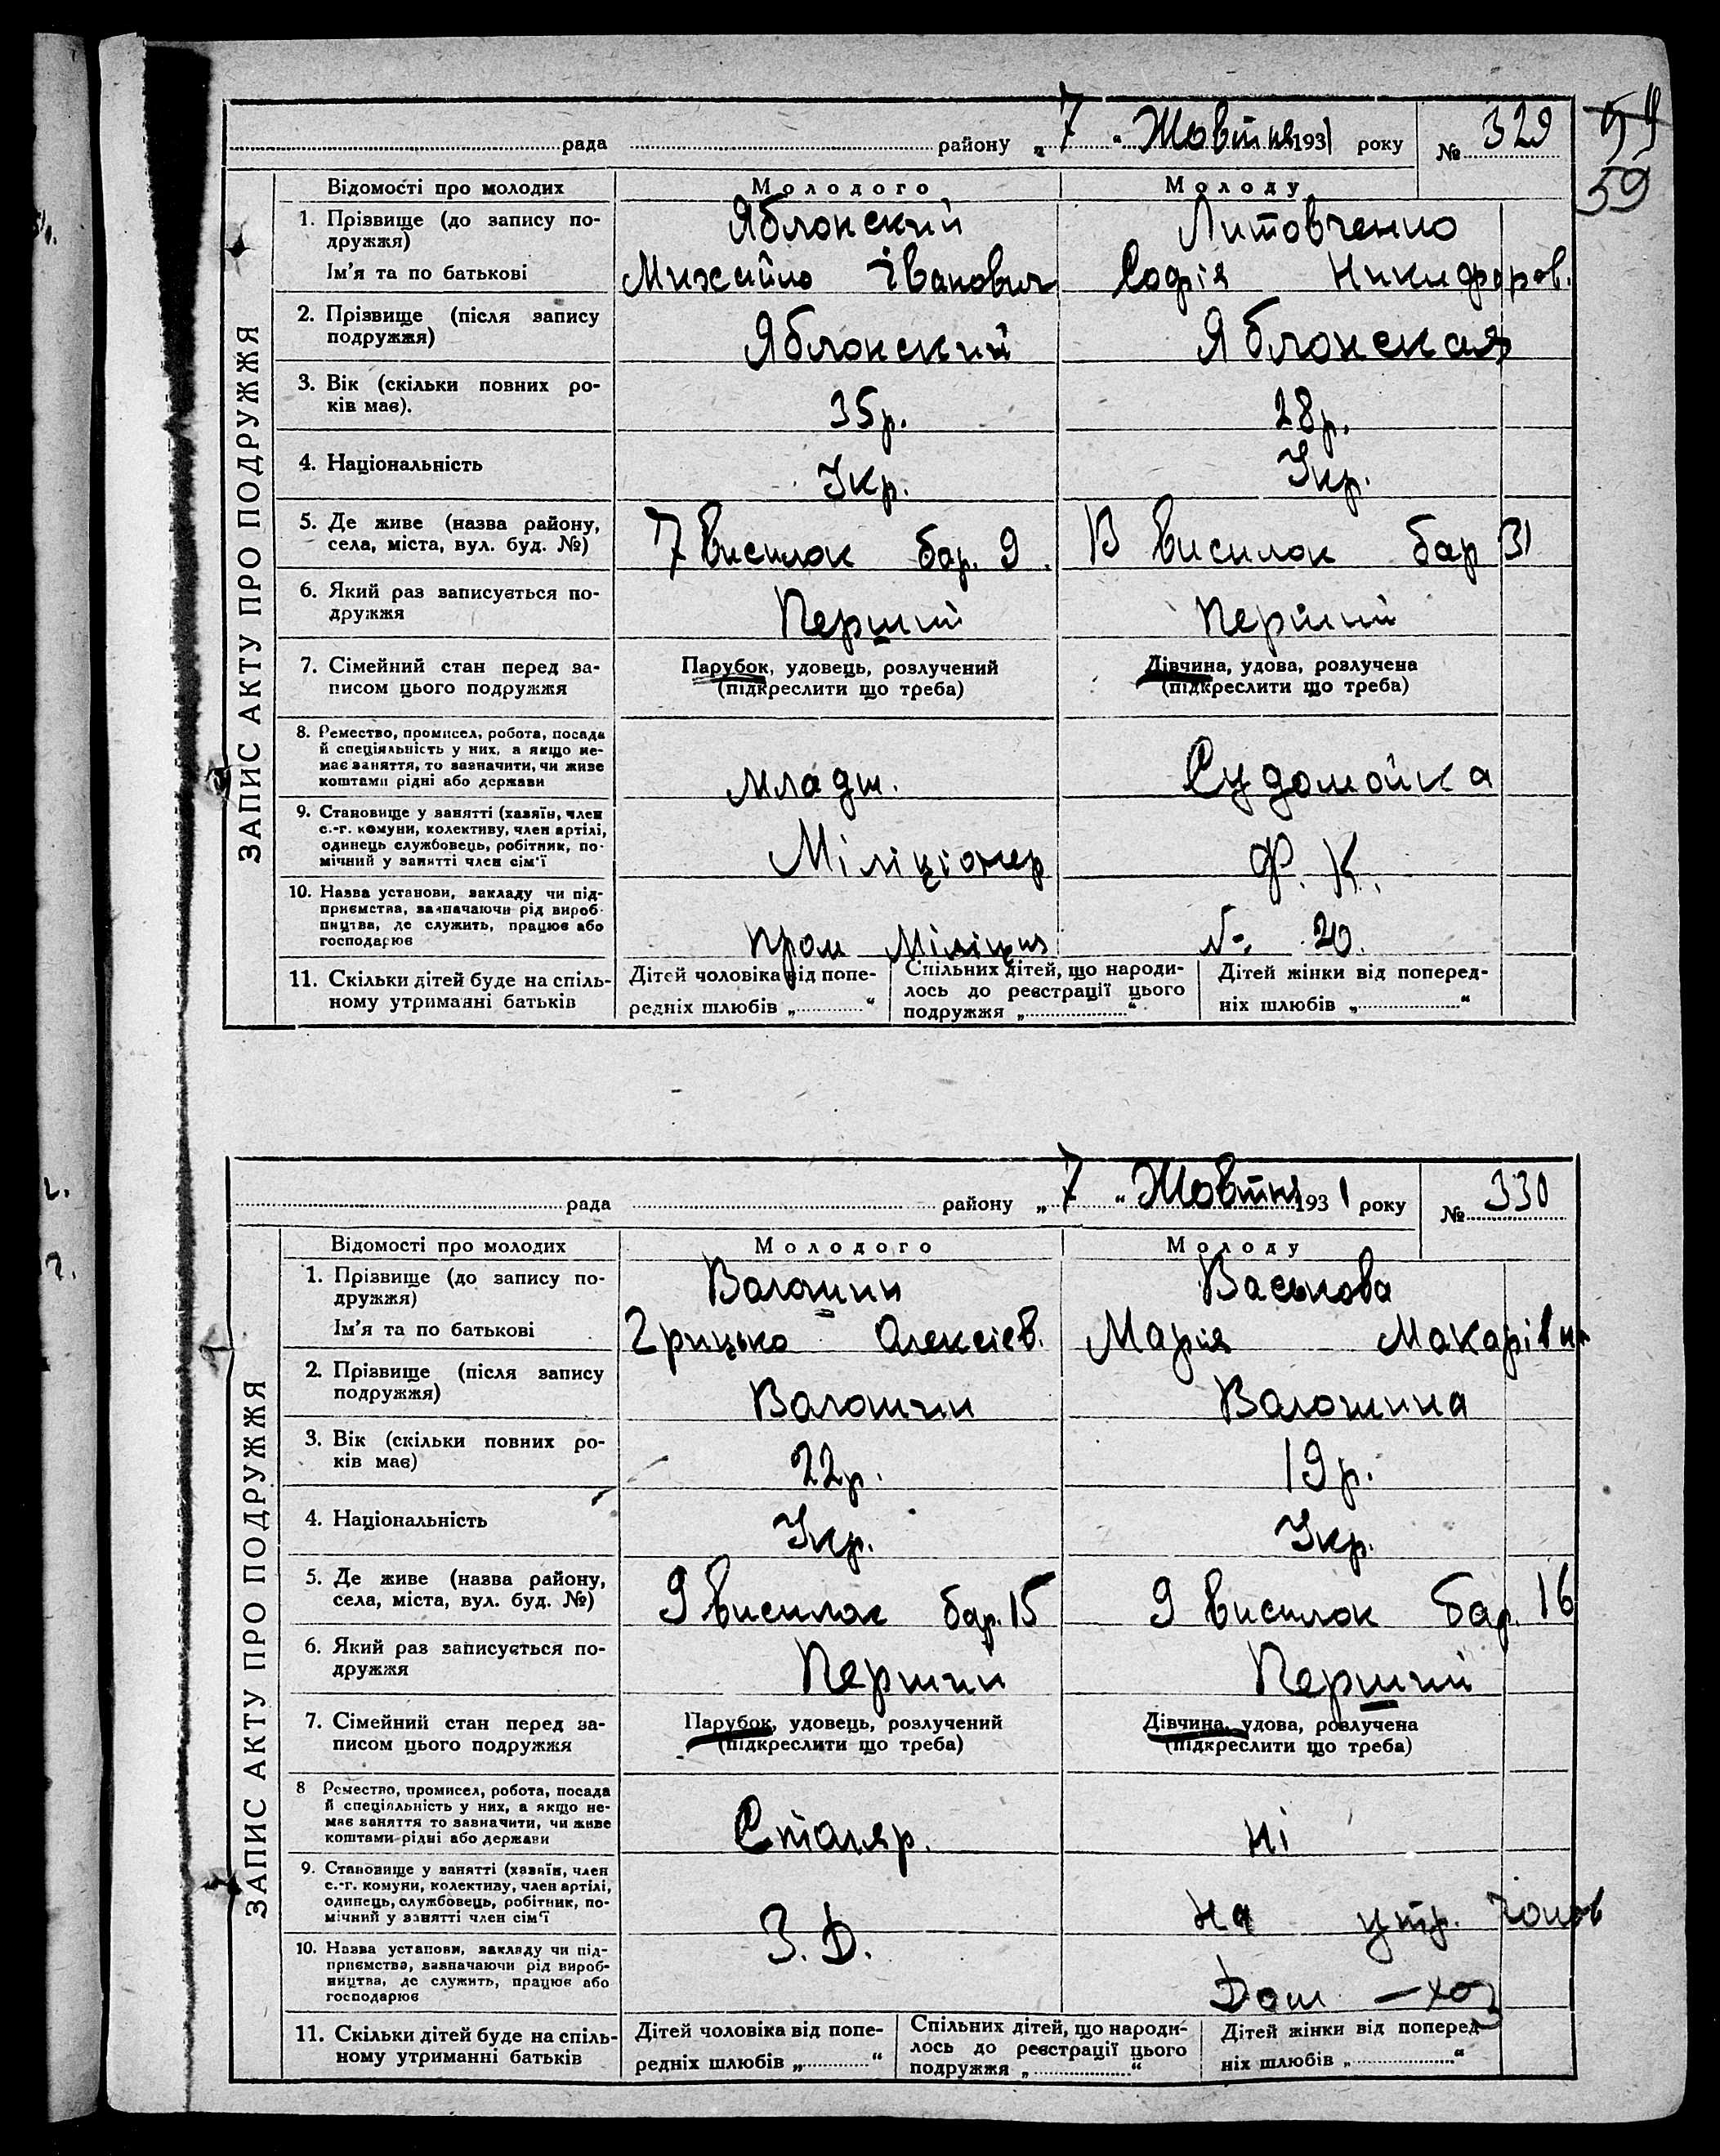 59
59
рада района „ 7 “ Жовтня 1931 року № 329
ЗАПИС АКТУ ПРО ПОДРУЖЖЯ
Відомості про молодих Молодого Молоду
1. Прізвище (до запису по- Яблонский Литовченко
дружжя)
Ім’я та по батькові Михайло Іванович Софія Никифоров.
2. Прізвище (після запису
подружжя) Яблонский Яблонская
3. Вік (скільки повних ро-
ків має). 35р. 28р.
4. Національність Укр. Укр.
5. Де живе (назва району,
села, міста, вул. буд. №) 7 висилок бар. 9. В висилок бар 31
6. Який раз записується по-
дружжя Перший Перший
7. Сімейний стан перед за- Парубок, удовець, розлучений Дівчина, удова, розлучена
писом цього подружжя (підкреслити що треба) (підкреслити що треба)
8. Ремество, промисел, робота, посада
й спеціяльність у них, а якщо не-
має заняття, то зазначити, чи живе
коштами рідні або держави младш. Судомойка
9. Становище у занятті (хазяїн, член
с.-г. комуни, колективу, член артілі,
одинець службовець, робітник, по-
мічний у занятті член сім’ї Міліціонер Ф. К.
10. Назва установи, закладу чи під-
приємства, зазначаючи рід вироб-
ництва, де служить, працює або
господарює пром Міліция № 20.
11. Скільки дітей буде на спіль- Дітей чоловіка від попе- Спільних дітей, що народи- Дітей жінки від поперед-
ному утриманні батьків редніх шлюбів „ “ лось до реєстрації цього ніх шлюбів „ “
подружжя „ “
рада району „ 7 “ Жовтня 1931 року № 330
ЗАПИС АКТУ ПРО ПОДРУЖЖЯ
Відомості про молодих Молодого Молоду
1. Прізвище (до запису по- Валошин Васькова
дружжя)
Ім’я та по батькові Грицько Алексіев. Марія Макарівна
2. Прізвище (після запису
подружжя) Валошин Валошина
3. Вік (скільки повних ро-
ків має) 22р. 19р.
4. Національність Укр. Укр.
5. Де живе (назва району,
села, міста, вул. буд. №) 9 висилок бар. 15 9 висилок бар. 16
6. Який раз записується по-
дружжя Перший Перший
7. Сімейний стан перед за- Парубок, удовець, розлучений Дівчина, удова, розлучена
писом цього подружжя (підкреслити що треба) (підкреслити що треба)
8 Ремество, промисел, робота, посада
й спеціяльність у них, а якщо не-
має заняття то зазначити, чи живе
коштами рідні або держави Столяр. ні
9. Становище у занятті (хазяїн, член
с.-г. комуни, колективу, член артілі,
одинець, службовець, робітник, по-
мічний у занятті член сім’ї З. Д. на утр.
10. Назва установи, закладу чи під-
приємства, зазначаючи рід вироб-
ництва, де служить, працює або
господарює Дом — хоз
11. Скільки дітей буде на спіль- Дітей чоловіка від попе- Спільних дітей, що народи- Дітей жінки від поперед-
ному утриманні батьків редніх шлюбів „ “ лось до реєстрації цього ніх шлюбів „ “
подружжя „ “